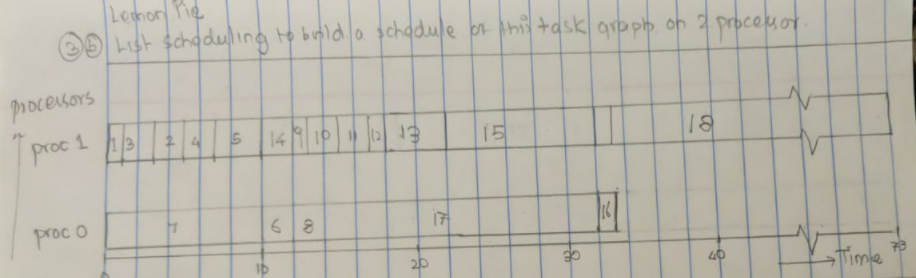 Lemon Pie
3 b List scheduling to build a schedule of this task graph on 2 processor.
processors
proc 1 1 3 2 4 5 14 9 10 11 12 13 15 18
proc 0 7 6 8 17 16
0 10 20 30 40 73 Time